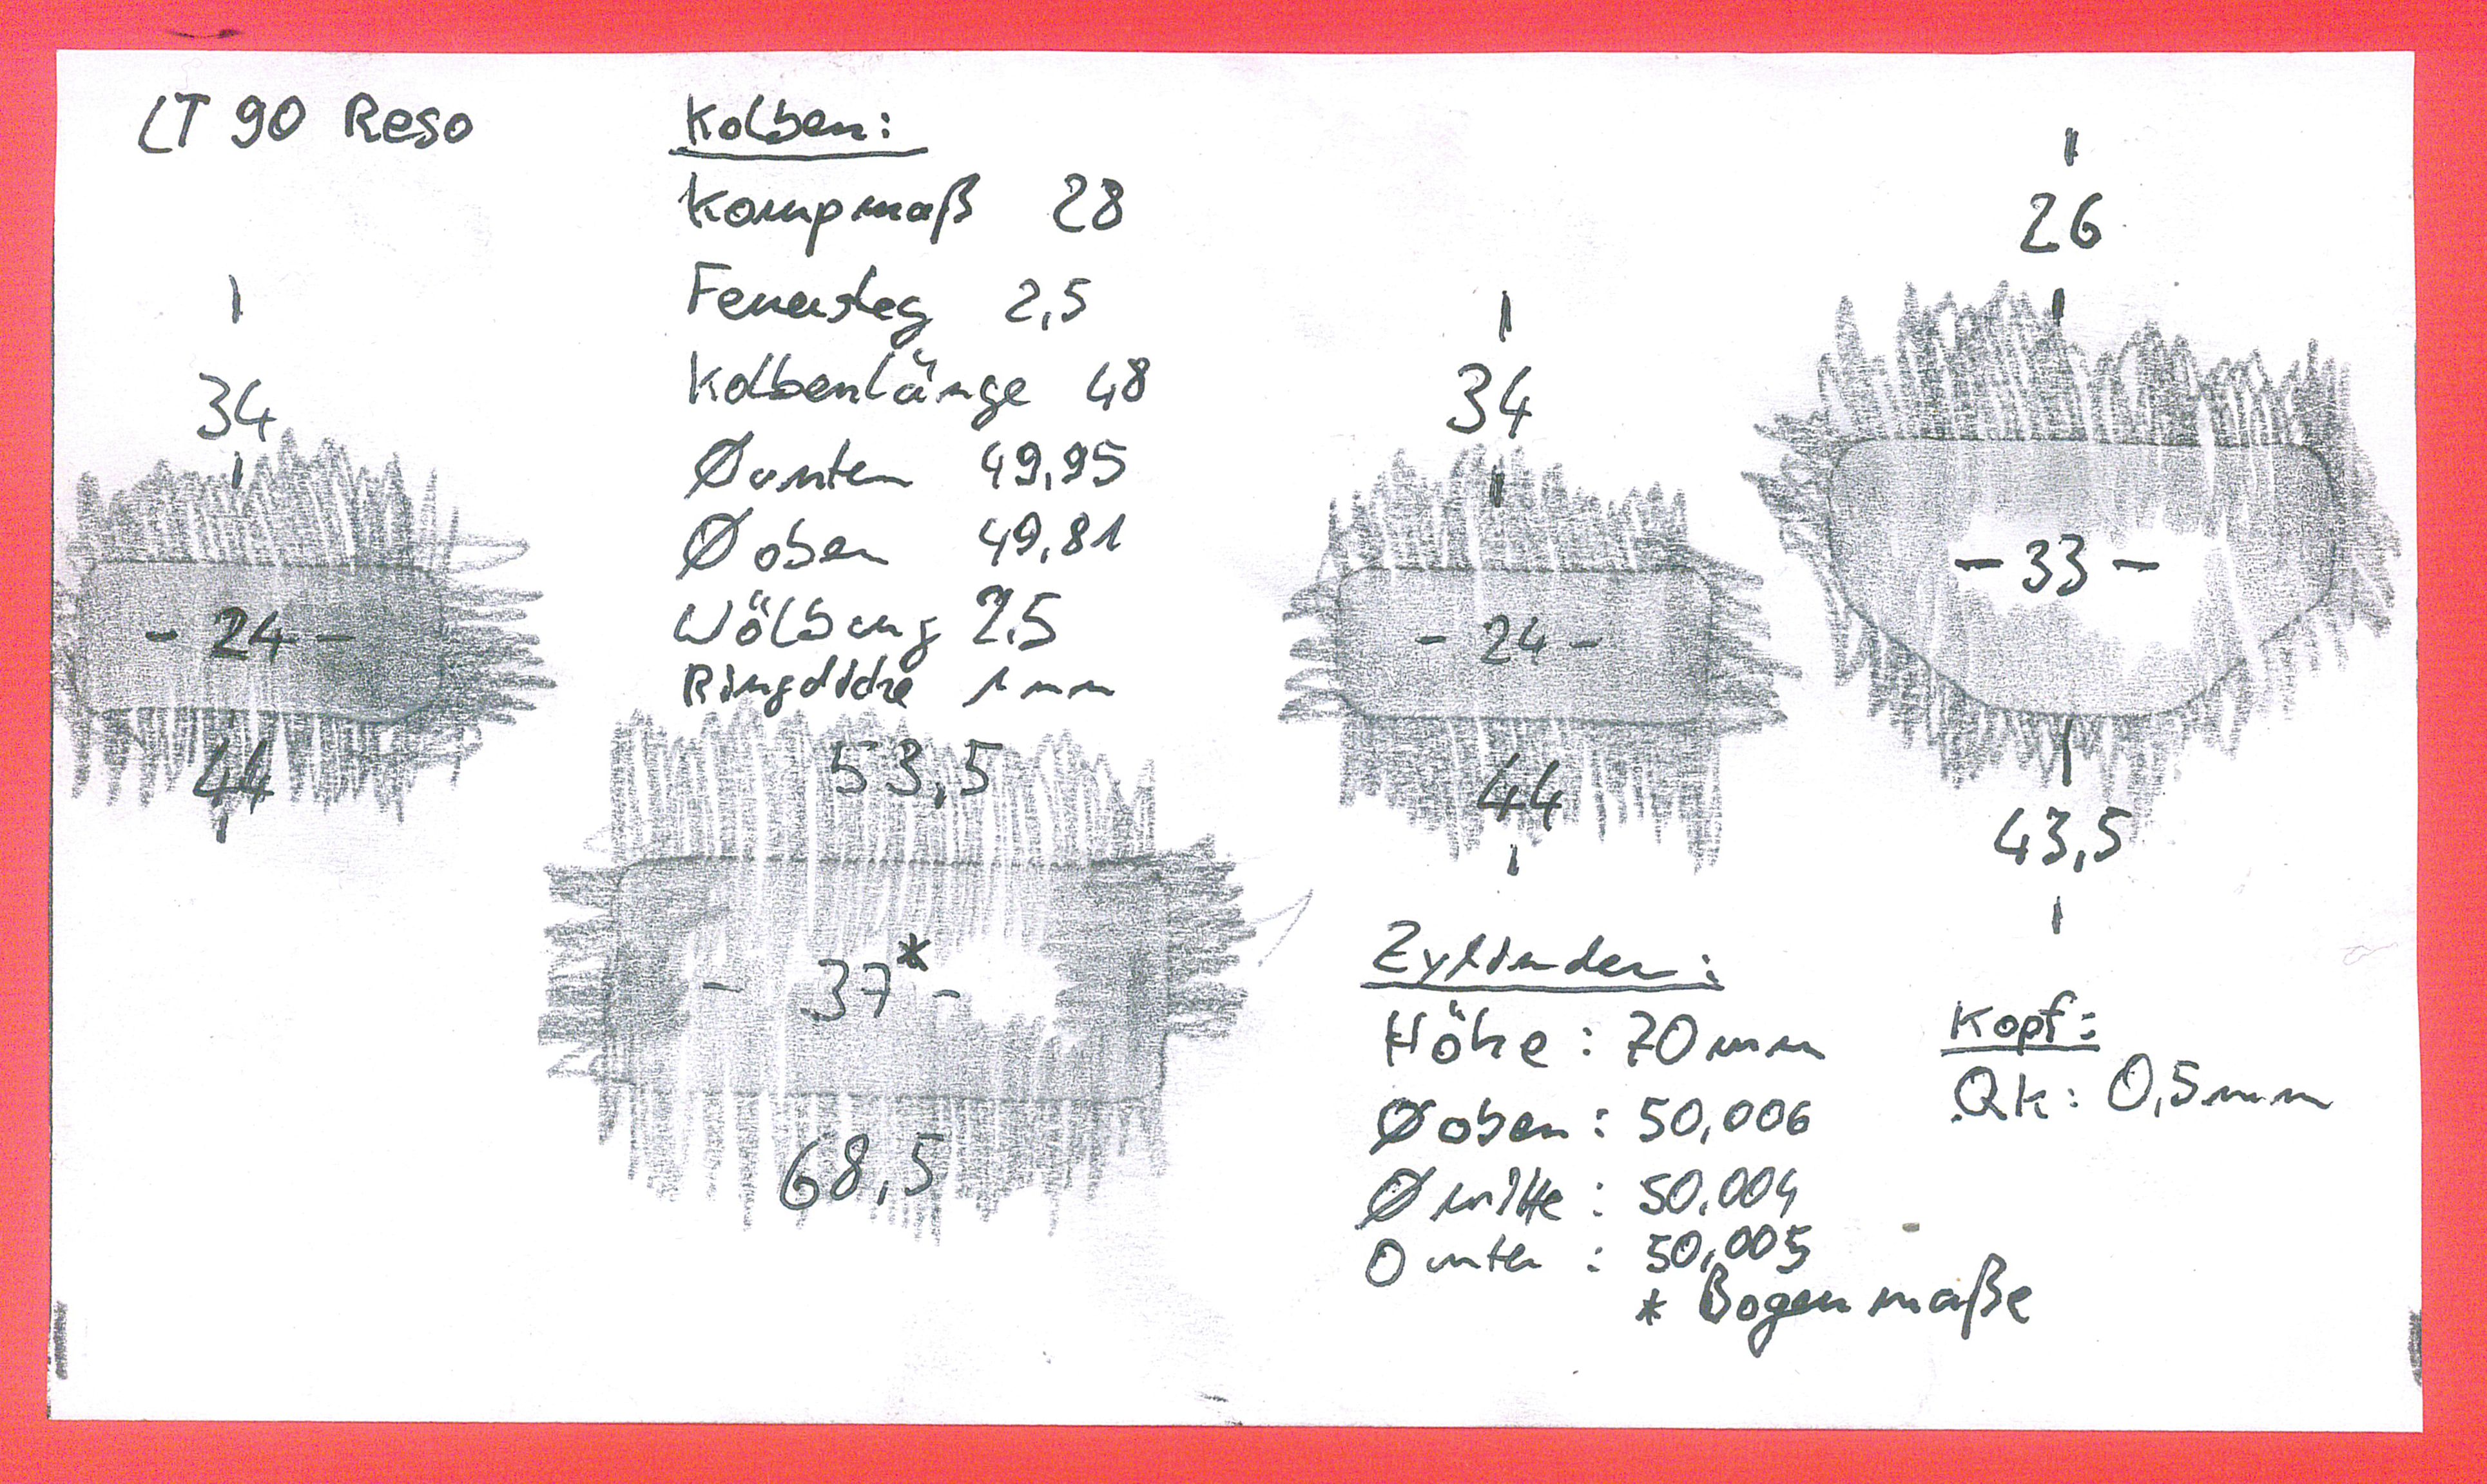 LT 90 Reso
34
- 24 -
44
Kolben:
Kompmaß 28
Feuersteg 2,5
Kolbenlänge 48
Ø unten 49,95
Ø oben 49,81
Wölbung 2,5
Ringdicke 1mm
53,5
- 37* -
68,5
34
- 24 -
44
26
- 33 -
43,5
Zylinder:
Höhe: 70mm
Ø oben: 50,006
Ø mitte: 50.004
O unten: 50,005
* Bogenmaße
Kopf:
Qk: 0,5mm